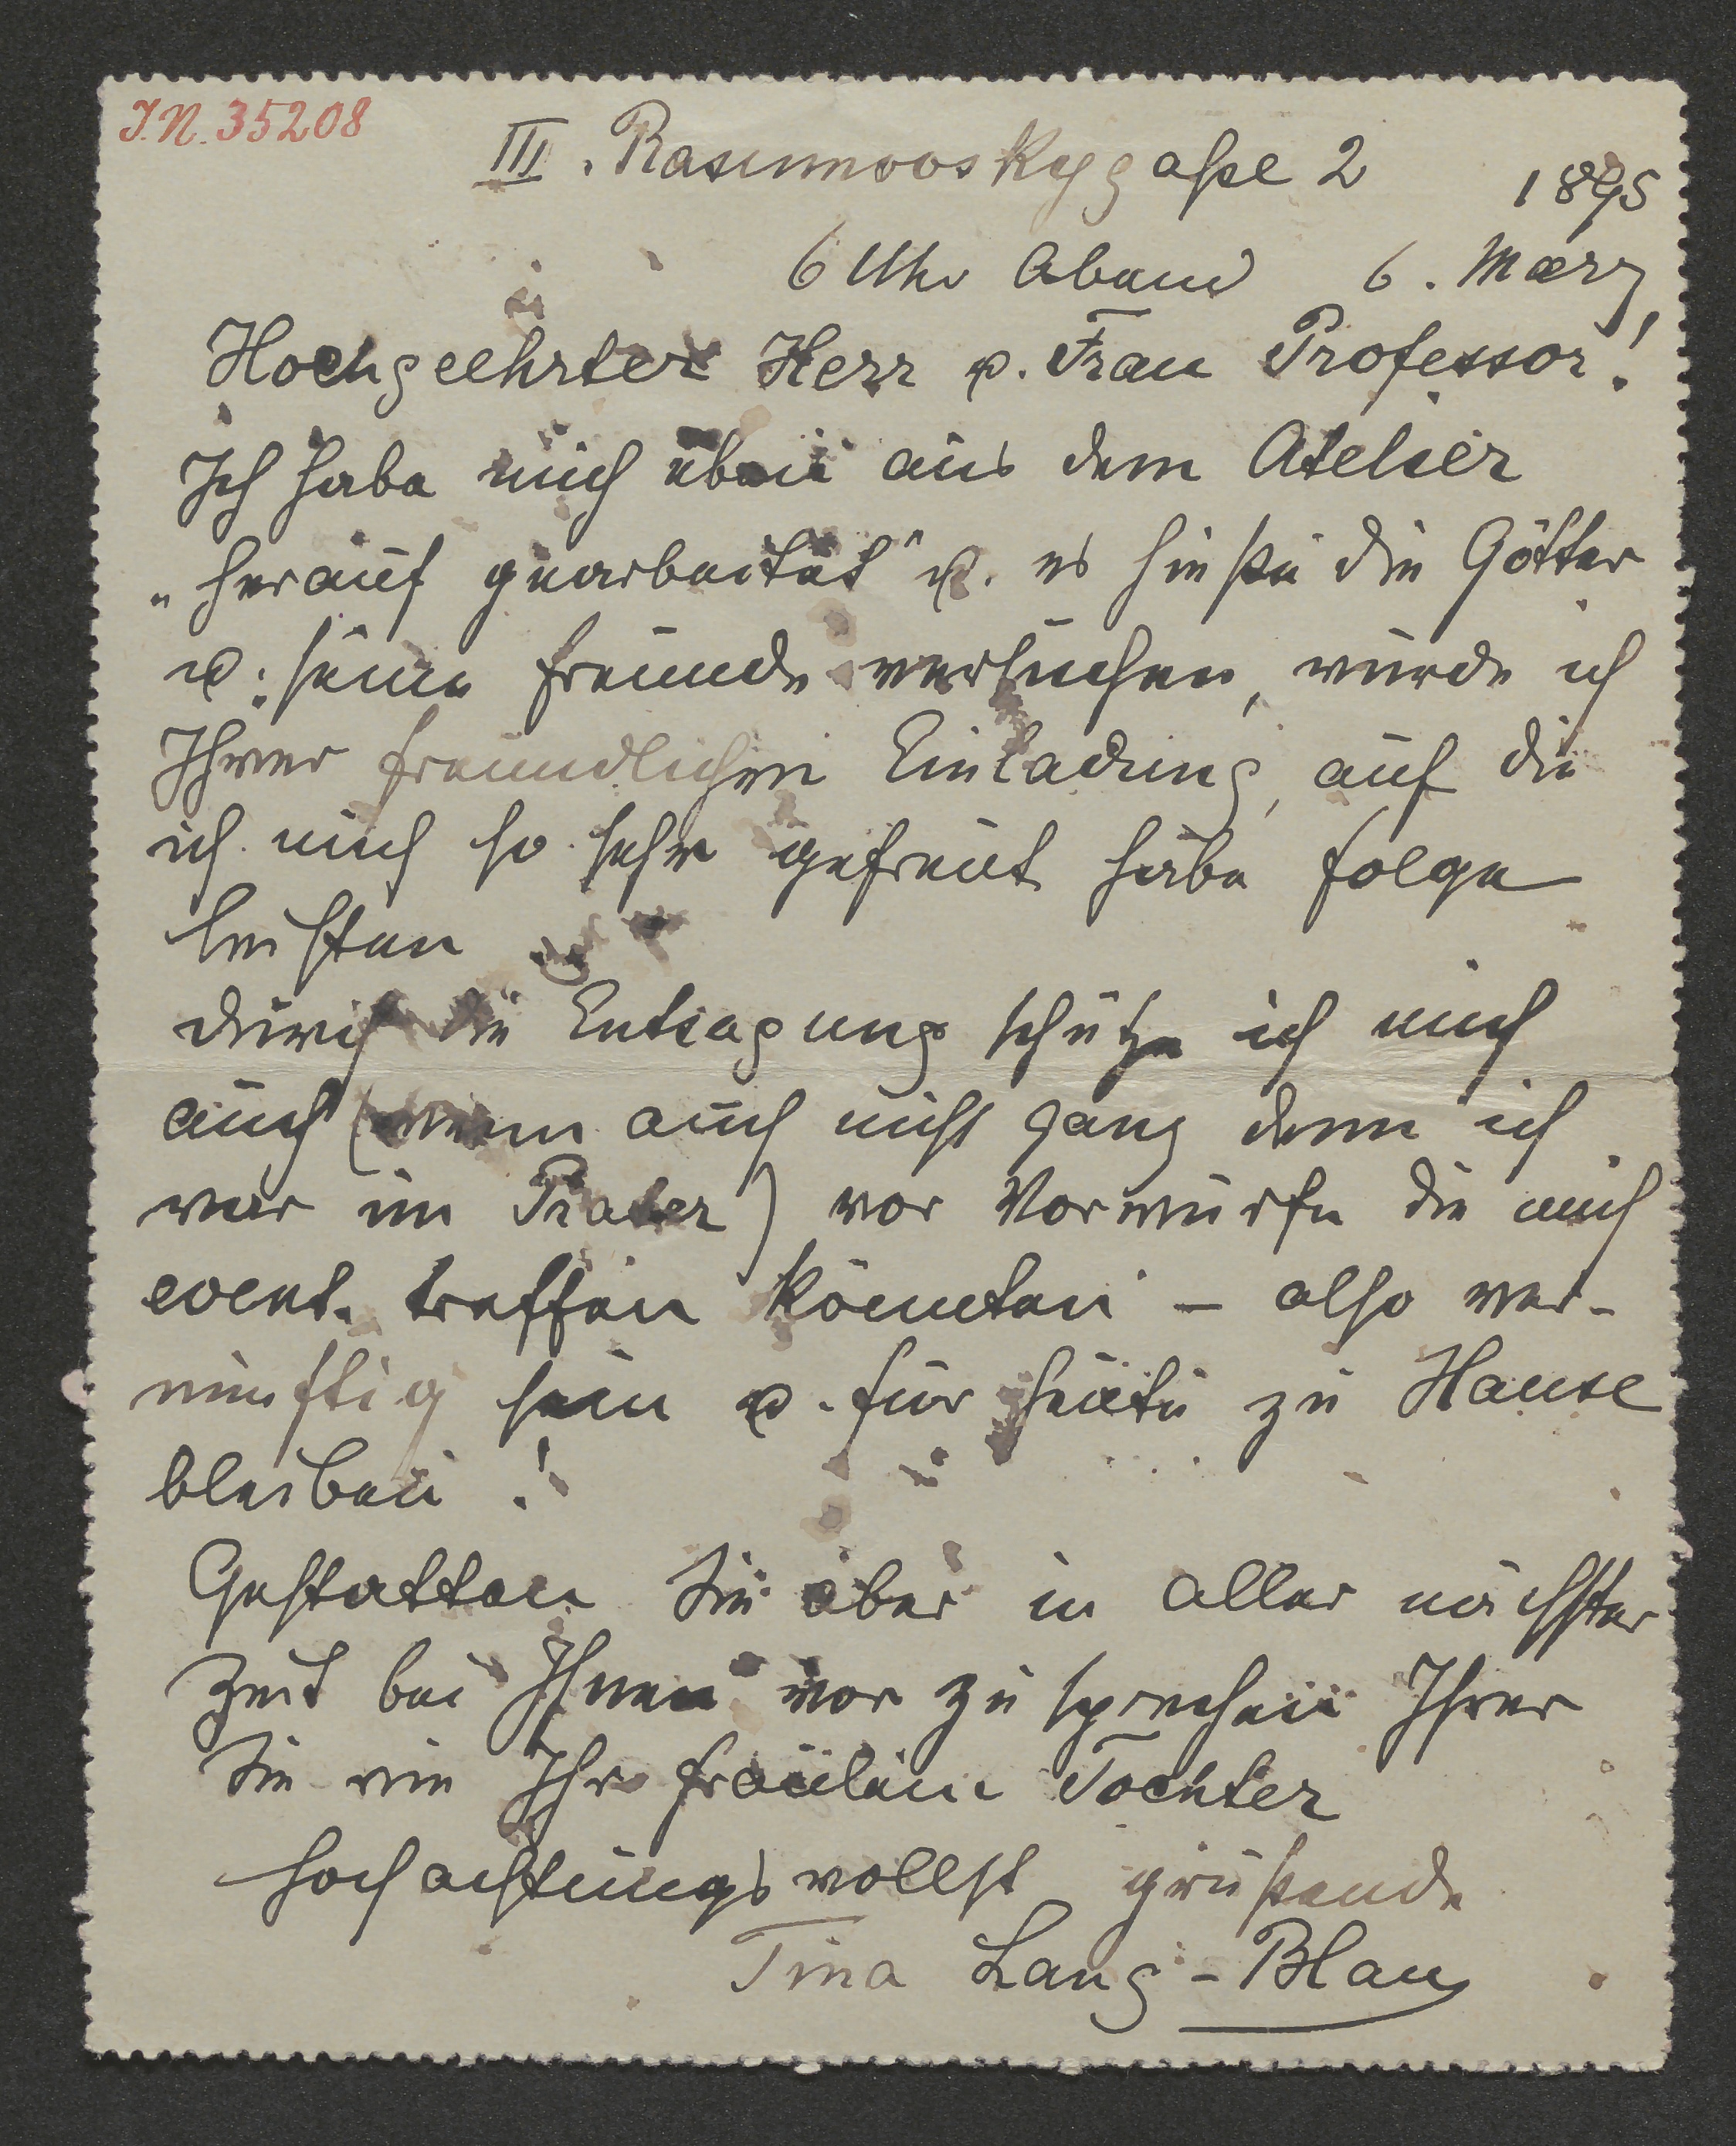 J.N. 35208
III. Rasumovskygasse 2
1895
6 Uhr Abend 6. März
Hochgeehrter Herr u. Frau Professor!
Ich habe mich eben aus dem Atelier
„herauf gearbeitet" u. es hieße die Götter
u. seine Freunde versuchen, würde ich
Ihrer freundlichen Einladung, auf die
ich mich so sehr gefreut habe folge
leisten
durch die Entsagung schütze ich mich
auch (wenn auch nicht ganz denn ich
war im Prater) vor Vorwürfe die mich
event. treffen könnten – also ver-
nünftig sein u. für heute zu Hause
bleiben!
Gestatten Sie aber in aller nächster
Zeit bei Ihnen vor zu sprechen Ihrer
Sie wie Ihr Fräulein Tochter
hochachtungsvollst grüßende
Tina Lang-Blau